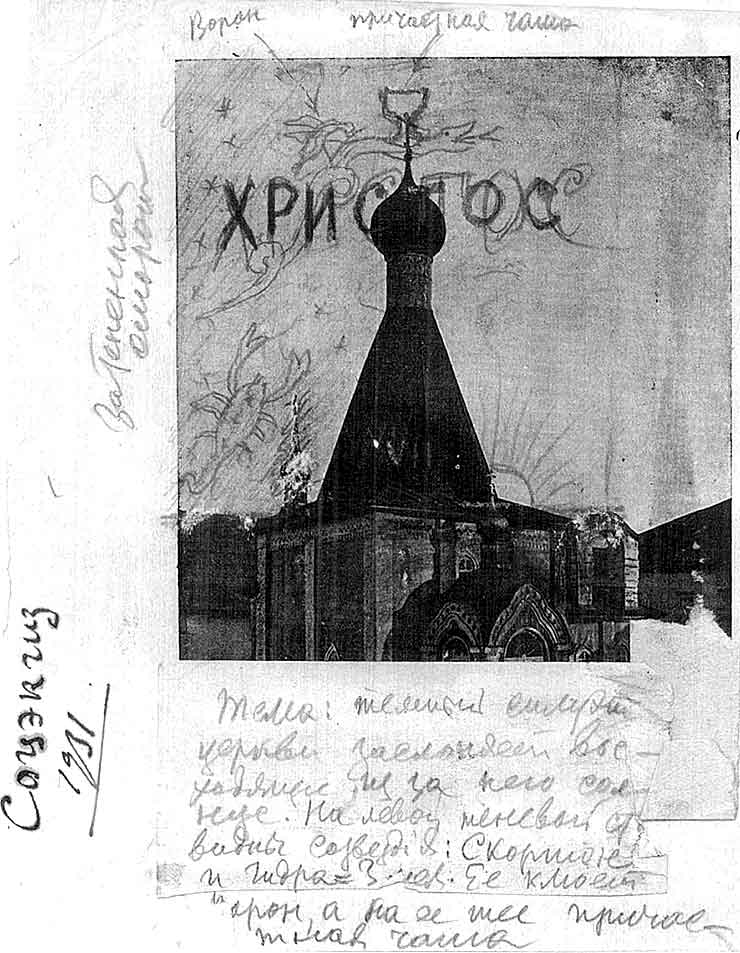 Ворон
причастная чаша
затененная
сторона
ХРИСТОС
Соцэкгиз
1931.
Тема: темный силуэт
церкви заслоняет вос-
ходящее из за него сол-
нце. На левой теневой ст
видны созвездiя: Скорпион
и гидра = Ее клюет
ворон, а на ее шее причас-
тная чаша